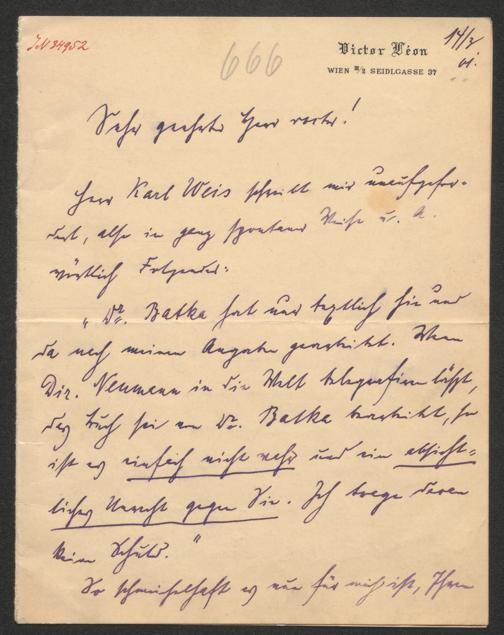 IN 24952
666
14/3
01.
Victor Léon
WIEN III/2 SEIDLGASSE 37
Sehr geehrter Herr Doctor!
Herr Karl Weis schreibt mir unaufgefor-
dert, also in ganz spontaner Weise u. A.
wörtlich Folgendes:
„Dr. Batka hat nur textlich hie und
da nach meinen Angaben gearbeitet. Wenn
Dir. Neumann in die Welt telegrafiren läßt,
das Buch sei von Dr. Batka bearbeitet, so
ist es einfach nicht wahr und ein absicht-
liches Unrecht gegen Sie. Ich trage daran
keine Schuld."
So schmeichelhaft es nun für mich ist, Ihren